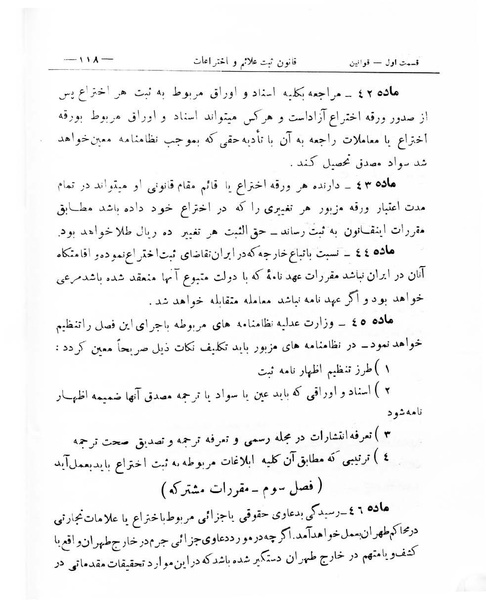 قسمت اول — قوانین قانون ثبت علائم و اختراعات —۱۱۸—
ماده ۴۲ ـ مراجعه بکلیه اسناد و اوراق مربوط به ثبت هر اختراع پس
از صدور ورقه اختراع آزاداست و هرکس میتواند اسناد و اوراق مربوط بورقه
اختراع یا معاملات راجعه به آن با تأدیه حقی که بموجب نظامنامه معین خواهد
شد سواد مصدق تحصیل کند.
ماده ۴۳ ـ دارنده هر ورقه اختراع یا قائم مقام قانونی او میتواند در تمام
مدت اعتبار ورقه مزبور هر تغییری را که در اختراع خود داده باشد مطابق
مقررات اینقانون به ثبت رساند ـ حق الثبت هر تغییر ده ریال طلا خواهد بود.
ماده ۴۴ ـ نسبت باتباع خارجه که در ایران تقاضای ثبت اختراع نموده و اقامتگاه
آنان در ایران نباشد مقررات عهد نامۀ که با دولت متبوع آنها منعقد شده باشد مرعی
خواهد بود و اگر عهد نامه نباشد معامله متقابله خواهد شد.
ماده ۴۵ ـ وزارت عدلیه نظامنامه های مربوطه باجرای این فصل را تنظیم
خواهد نمود ـ در نظامنامه های مزبور باید تکلیف نکات ذیل صریحاً معین گردد:
۱ ) طرز تنظیم اظهار نامه ثبت
۲ ) اسناد و اوراقی که باید عین یا سواد یا ترجمه مصدق آنها ضمیمه اظهار
نامه شود
۳ ) تعرفه انتشارات در مجله رسمی و تعرفه ترجمه و تصدیق صحت ترجمه
۴ ) ترتیبی که مطابق آن کلیه ابلاغات مربوطه به ثبت اختراع باید بعمل آید
( فصل سوم ـ مقررات مشترکه )
ماده ۴۶ ـ رسیدگی بدعاوی حقوقی یا جزائی مربوط باختراع یا علامات تجارتی
در محاکم طهران بعمل خواهد آمد. اگر چه در مورد دعاوی جزائی جرم در خارج طهران واقع یا
کشف و یا متهم در خارج طهران دستگیر شده باشد که در این موارد تحقیقات مقدماتی در